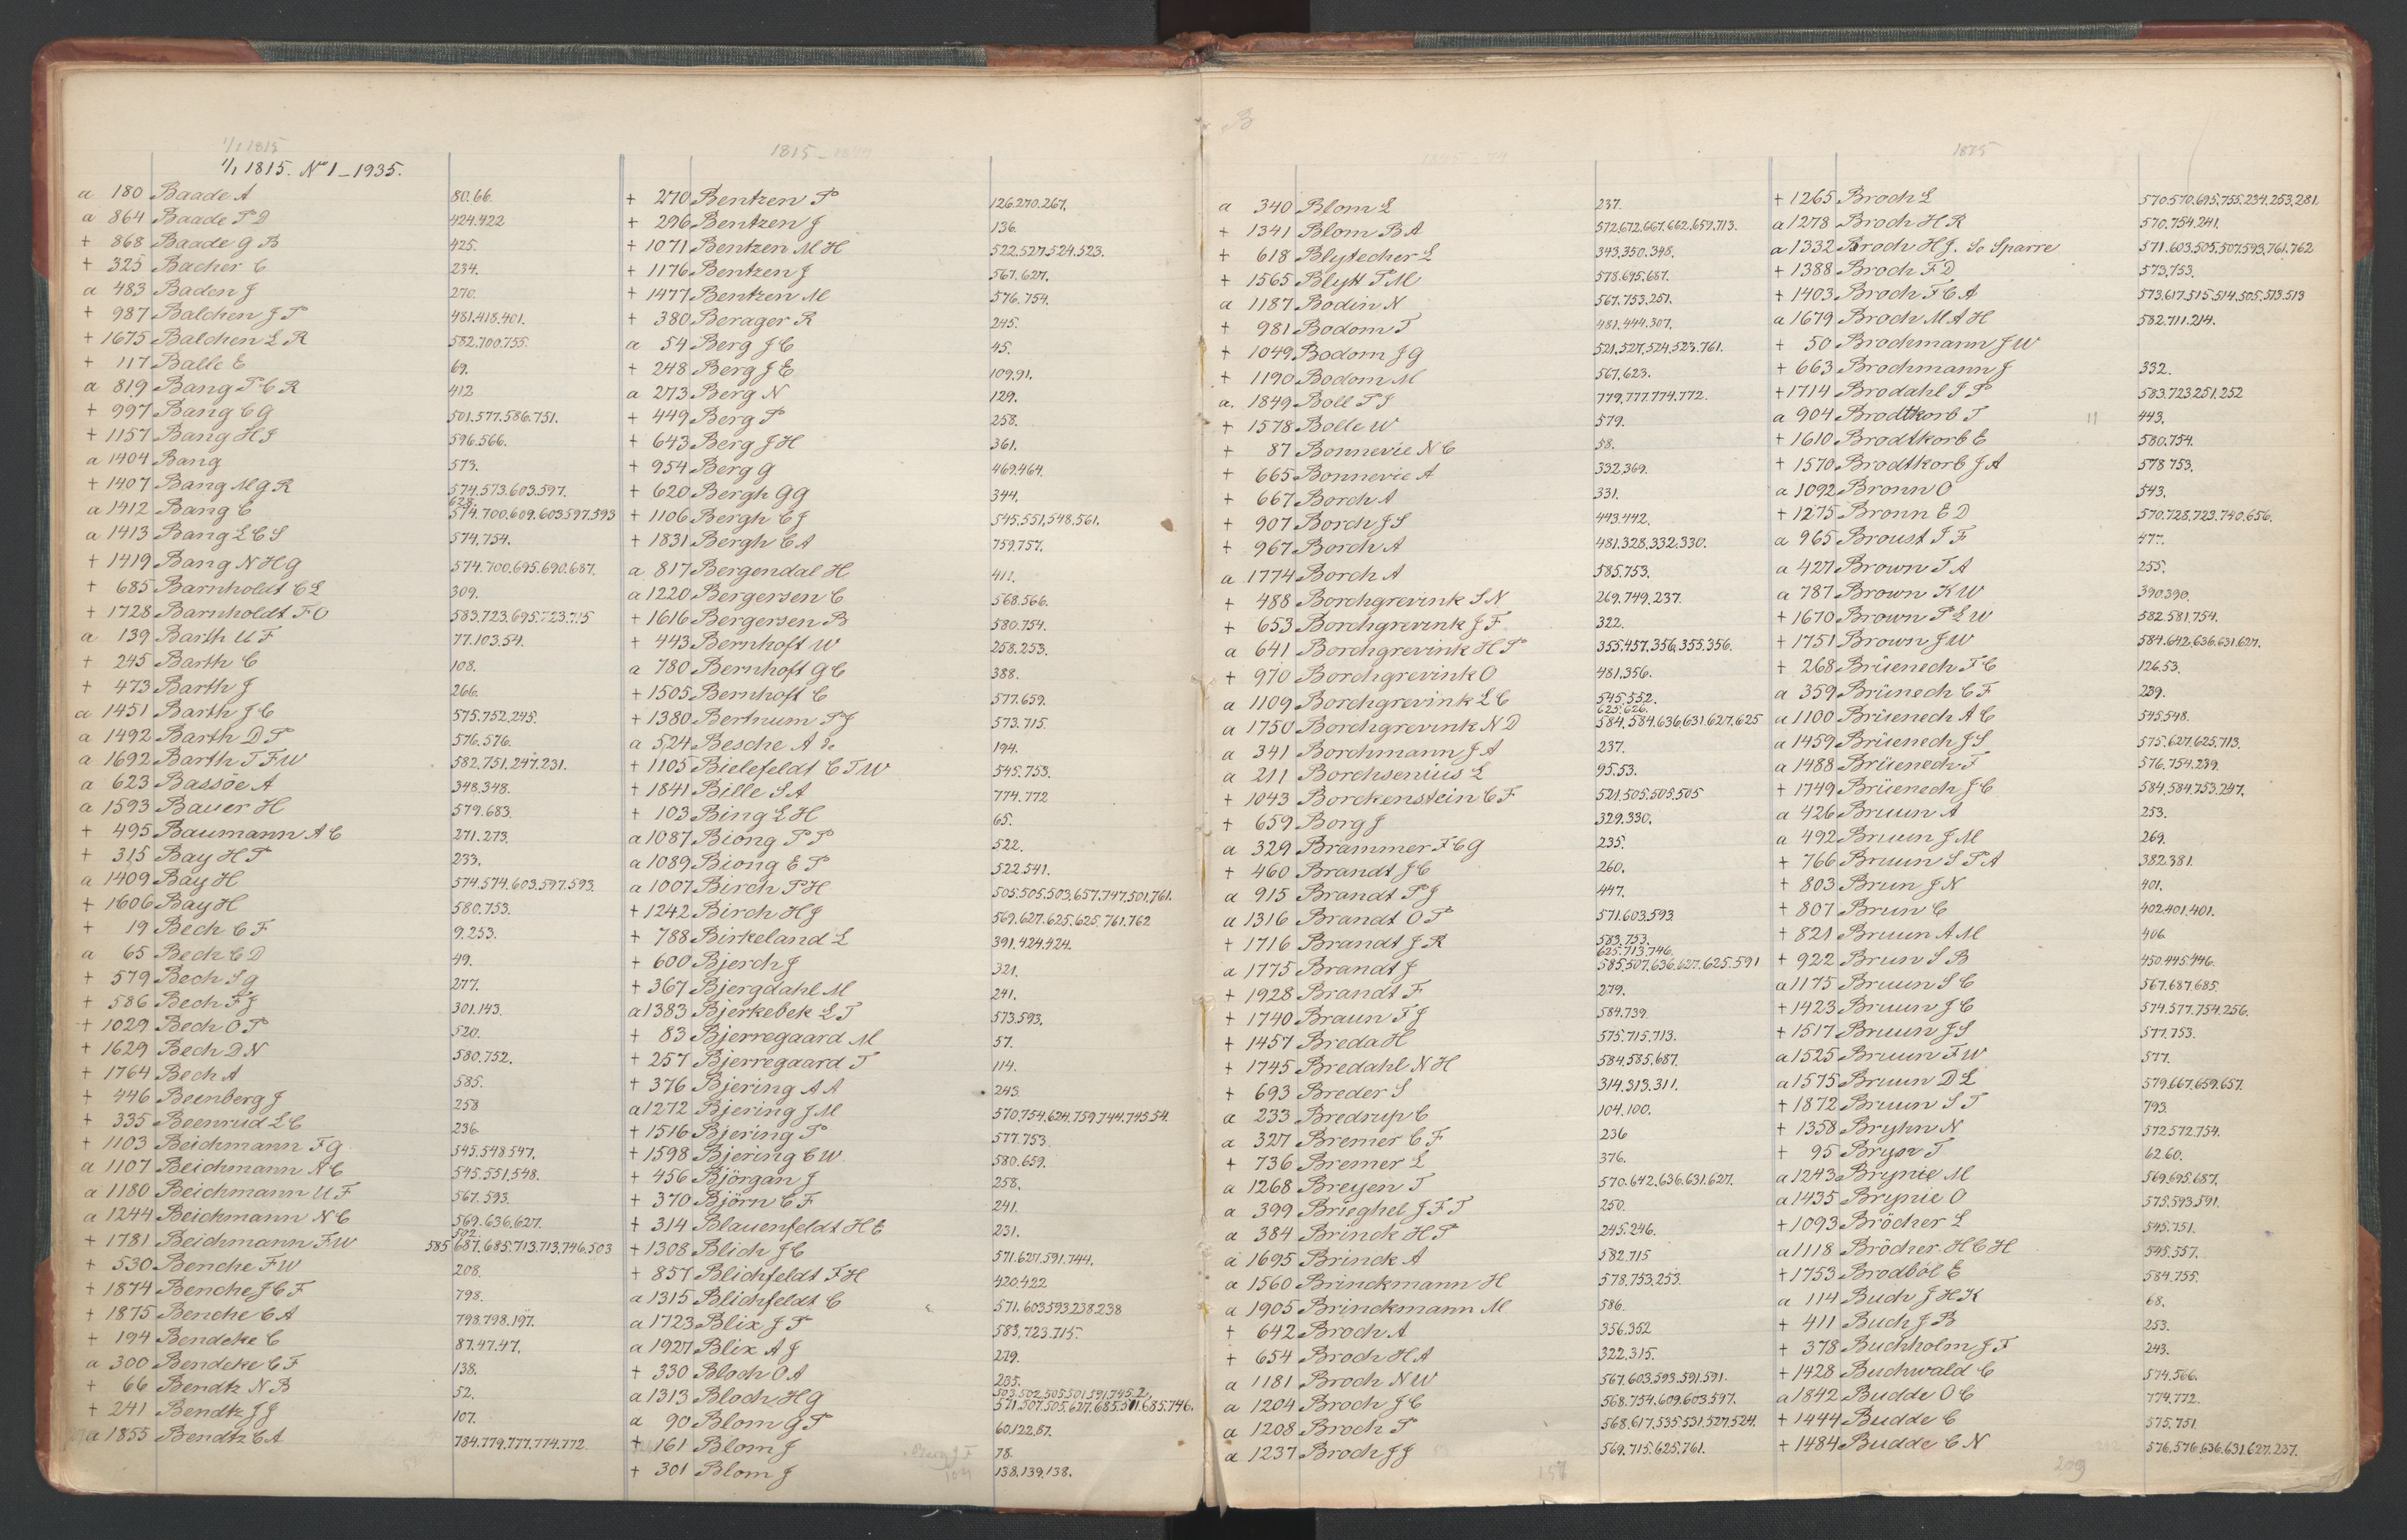 1/1 1815
1/1 1815. No 1_1935.
a 180 Baade A 80.66.
a 864 Baade P D 424.422
+ 868 Baade G B 425.
+ 325 Bacher C 234.
a 483 Baden J 270.
+ 987 Balchen J P 481.418.401.
+ 1675 Balchen L R 582.700.755.
+ 117 Balle E 69.
a 819 Bang P C R 412
+ 997 Bang C G 501.577.586.751.
+ 1157 Bang H J 596.566.
a 1404 Bang 573.
+ 1407 Bang M G R 574.573.603.597.
628.
a 1412 Bang C 574.700.609.603.597.593
a 1413 Bang L C S 574.754.
+ 1419 Bang N H G 574.700.695.690.687.
+ 685 Barnholdt C L 309.
+ 1728 Barnholdt F O 583.723.695.723.715
a 139 Barth U F 77.103.54.
+ 245 Barth C 108.
+ 473 Barth J 266.
a 1451 Barth J C 575.752.245.
a 1492 Barth D P 576.576.
a 1692 Barth T F W 582.751.247.231.
a 623 Bassöe A 348.348.
a 1593 Bauer H 579.683.
+ 495 Baumann A C 271.273.
+ 315 Bay H P 233.
a 1409 Bay H 574.574.603.597.593.
+ 1606 Bay H 580.753.
+ 19 Bech C F 9.253.
a 65 Bech C D 49.
+ 579 Bech S G 277.
+ 586 Bech F J 301.143.
+ 1029 Bech O P 520.
+ 1629 Bech D N 580.752.
+ 1764 Bech A 585.
+ 446 Beenberg J 258
+ 335 Beenrud L C 236
+ 1103 Beichmann F G 545.548.547.
a 1107 Beichmann A C 545.551.548.
a 1180 Beichmann U F 567.593.
a 1244 Beichmann N C 569.636.627.
592.
+ 1781 Beichmann F W 585 687.685.713.713.746.503
+ 530 Benche F W 208.
+ 1874 Benche J C F 798.
+ 1875 Benche C A 798.798.197.
+ 194 Bendeke C 87.47.47.
a 300 Bendeke C F 138.
+ 66 Bendtz N B 52.
+ 241 Bendtz J J 107.
a 1855 Bendtz C A 784.779.777.774.772.
1815_1844
+ 270 Bentzen P 126.270.267.
+ 296 Bentzen J 136.
+ 1071 Bentzen M H 522.527.524.523.
+ 1176 Bentzen J 567.627.
+ 1477 Bentzen M 576.754.
+ 380 Berager R 245.
a 54 Berg J C 45.
+ 248 Berg J E 109.91.
a 273 Berg N 129.
+ 449 Berg P 258.
+ 643 Berg J H 361.
+ 954 Berg G 469.464.
+ 620 Bergh G G 344.
+ 1106 Bergh C J 545.551.548.561.
+ 1831 Bergh C A 759.757.
a 817 Bergendal H 411.
a 1220 Bergersen C 568.566.
+ 1616 Bergersen B 580.754.
+ 443 Bernhoft W 258.253.
a 780 Bernhoft G C 388.
+ 1505 Bernhoft C 577.659.
+ 1380 Bertnum P J 573.715.
a 524 Besche A de 194.
+ 1105 Bielefeldt C T W 545.753.
+ 1841 Bille S A 774.772
+ 103 Bing L H 65.
a 1087 Biong P P 522.
a 1089 Biong E P 522.541.
a 1007 Birch P H 505.505.503.657.747.501.761.
+ 1242 Birch H J 569.627.625.625.761.762
+ 788 Birkeland L 391.424.424.
+ 600 Bjerch J 321.
+ 367 Bjergdahl M 241.
a 1383 Bjerkebek L T 573.593.
+ 83 Bjerregaard M 57.
+ 257 Bjerregaard T 114.
+ 376 Bjering A A 243.
a 1272 Bjering J M 570.754.624.759.744.745.54.
+ 1516 Bjering P 577.753
+ 1598 Bjering C W 580.659.
+ 456 Björgan J 258.
+ 370 Björn C F 241.
+ 314 Blauenfeldt H E 231.
+ 1308 Blich J C 571.627.591.744.
+ 857 Blichfeldt F H 420.422
a 1315 Blichfeldt C 571.603.593.238.238
a 1723 Blix J P 583.723.715.
a 1927 Blix A J 279.
+ 330 Bloch O A 235.
503.502.505.501.591.745.2.
a 1313 Bloch H G 571.507.505.627.685.501.685.746.
a 90 Blom G P 60.122.57.
+ 161 Blom J 78.
+ 301 Blom J 138.139.138.
B
a 340 Blom L 237.
+ 1341 Blom B A 572.672.667.662.657.713.
+ 618 Blytecher L 343.350.348.
+ 1565 Blytt P M 578.695.687.
a 1187 Bodin N 567.753.251.
+ 981 Bodom T 481.444.307.
+ 1049 Bodom J G 521.527.524.523.761.
+ 1190 Bodom M 567.623.
a. 1849 Boll P J 779.777.774.772.
+ 1578 Bolle W 579.
+ 87 Bonnevie N C 58.
+ 665 Bonnevie A 332.369.
+ 667 Borch A 331.
+ 907 Borch J S 443.442.
+ 967 Borch A 481.328.332.330.
a 1774 Borch A 585.753.
+ 488 Borchgrevink S N 269.749.237.
+ 653 Borchgrevink J F 322.
a 641 Borchgrevink H P 355.457.356.355.356.
+ 970 Borchgrevink O 481.356.
a 1109 Borchgrevink L C 545.552.
625.626.
a 1750 Borchgrevink N D 584.584.636.631.627.625
a 341 Borchmann J A 237.
a 211 Borchsenius L 95.53.
+ 1043 Borckenstein C F 521.505.505.505
+ 659 Borg J 329.330.
a 329 Brammer F C G 235.
+ 460 Brandt J C 260.
a 915 Brandt P J 447.
a 1316 Brandt O P 571.603.593
+ 1716 Brandt J R 583.753.
625.713.746.
a 1775 Brandt J 585.507.636.627.625.591
+ 1928 Brandt F 279.
+ 1740 Braun F J 584.739.
+ 1457 Breda H 575.715.713.
+ 1745 Bredahl N H 584.585.687.
+ 693 Breder S 314.313.311.
a 233 Bredrup C 104.100.
a 327 Bremer C F 236
+ 736 Bremer L 376.
a 1268 Breyen T 570.642.636.631.627.
a 399 Brieghel J F T 250.
a 384 Brinck H P 245.246.
a 1695 Brinck A 582.715
a 1560 Brinckmann H 578.753.253.
a 1905 Brinckmann M 586.
+ 642 Broch A 356.352
+ 654 Broch H A 322.315.
a 1181 Broch N W 567.603.593.591.591.
a 1204 Broch J C 568.754.609.603.597.
a 1208 Broch P 568.617.535.531.527.524.
a 1237 Broch J J 569.715.625.761.
157
1875
+ 1265 Broch L 570.570.695.755.234.253.281.
a 1278 Broch H R 570.754.241.
a 1332 Broch H J. So Sparre 571.603.505.507.593.761.762
+ 1388 Broch F D 573.753.
+ 1403 Broch F C A 573.617.515.514.505.513.513
a 1679 Broch M A H 582.711.214.
+ 50 Brochmann J W
+ 663 Brochmann J 332.
+ 1714 Brodahl J P 583.723.251.252
a 904 Brodtkorb T 443.
+ 1610 Brodtkorb E 580.754.
+ 1570 Brodtkorb J A 578.753.
a 1092 Bronn O 543.
+ 1275 Bronn E D 570.728.723.740.656.
a 965 Broust J F 477.
a 427 Brown T A 255.
a 787 Brown K W 390.390.
+ 1670 Brown P L W 582.581.754.
+ 1751 Brown J W 584.642.636.631.627.
+ 268 Brüenech F C 126.53.
a 359 Brünech C F 239.
a 1100 Brüenech A C 545.548.
a 1459 Brüenech J S 575.627.625.713.
a 1488 Brüenech F 576.754.239.
+ 1749 Brüenech J C 584.584.753.247.
a 426 Bruun A 253.
a 492 Bruun J M 269.
+ 766 Bruun S P A 382.381.
+ 803 Brun J N 401.
+ 807 Brun C 402.401.401.
+ 821 Bruun A M 406
+ 922 Brun S B 450.445.446.
a 1175 Bruun S C 567.687.685.
+ 1423 Bruun J C 574.577.754.256.
+ 1517 Bruun J S 577.753.
a 1525 Bruun F W 577.
a 1575 Bruun D L 579.667.659.657.
+ 1872 Bruun S T 793.
+ 1358 Bryhn N 572.572.754.
+ 95 Bryn T 62.60.
a 1243 Brynie M 569.695.687.
a 1435 Brynie O 575.593.591.
+ 1093 Bröcher L 545.751.
a 1118 Bröcher H C H 545.557.
+ 1753 Brodböl E 584.755.
a 114 Buch J H K 68.
+ 411 Buch J B 253.
+ 378 Buchholm J F 243.
+ 1428 Buchwald C 574.566.
a 1842 Budde O C 774.772.
+ 1444 Budde C 575.751
+ 1484 Budde C N 576.576.636.631.627.237.
209